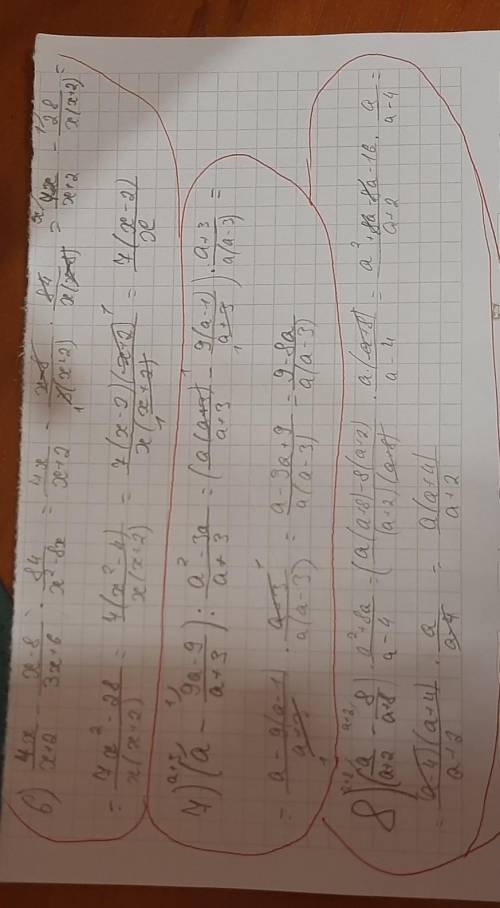 6) 7x/(x+2) - (x-8)/(3x+6) · 84/(x²-8x) = 7x/(x+2) - (x-8)/(3(x+2)) · 84/(x(x-8)) = 7x/(x+2) - 28/(x(x+2)) =
= (7x²-28)/(x(x+2)) = 7(x²-4)/(x(x+2)) = 7(x-2)(x+2)/(x(x+2)) = 7(x-2)/x
7) (a - (9a-9)/(a+3)) : (a²-3a)/(a+3) = (a(a+3)/(a+3) - 9(a-1)/(a+3)) · (a+3)/(a(a-3)) =
= (a-9(a-1))/(a+3) · (a+3)/(a(a-3)) = (a-9a+9)/(a(a-3)) = (9-8a)/(a(a-3))
8) (a/(a+2) - 8/(a+8)) · (a²+8a)/(a-4) = (a(a+8)-8(a+2))/((a+2)(a+8)) · a(a+8)/(a-4) = (a²+8a-8a-16)/(a+2) · a/(a-4) =
= (a-4)(a+4)/(a+2) · a/(a-4) = a(a+4)/(a+2)